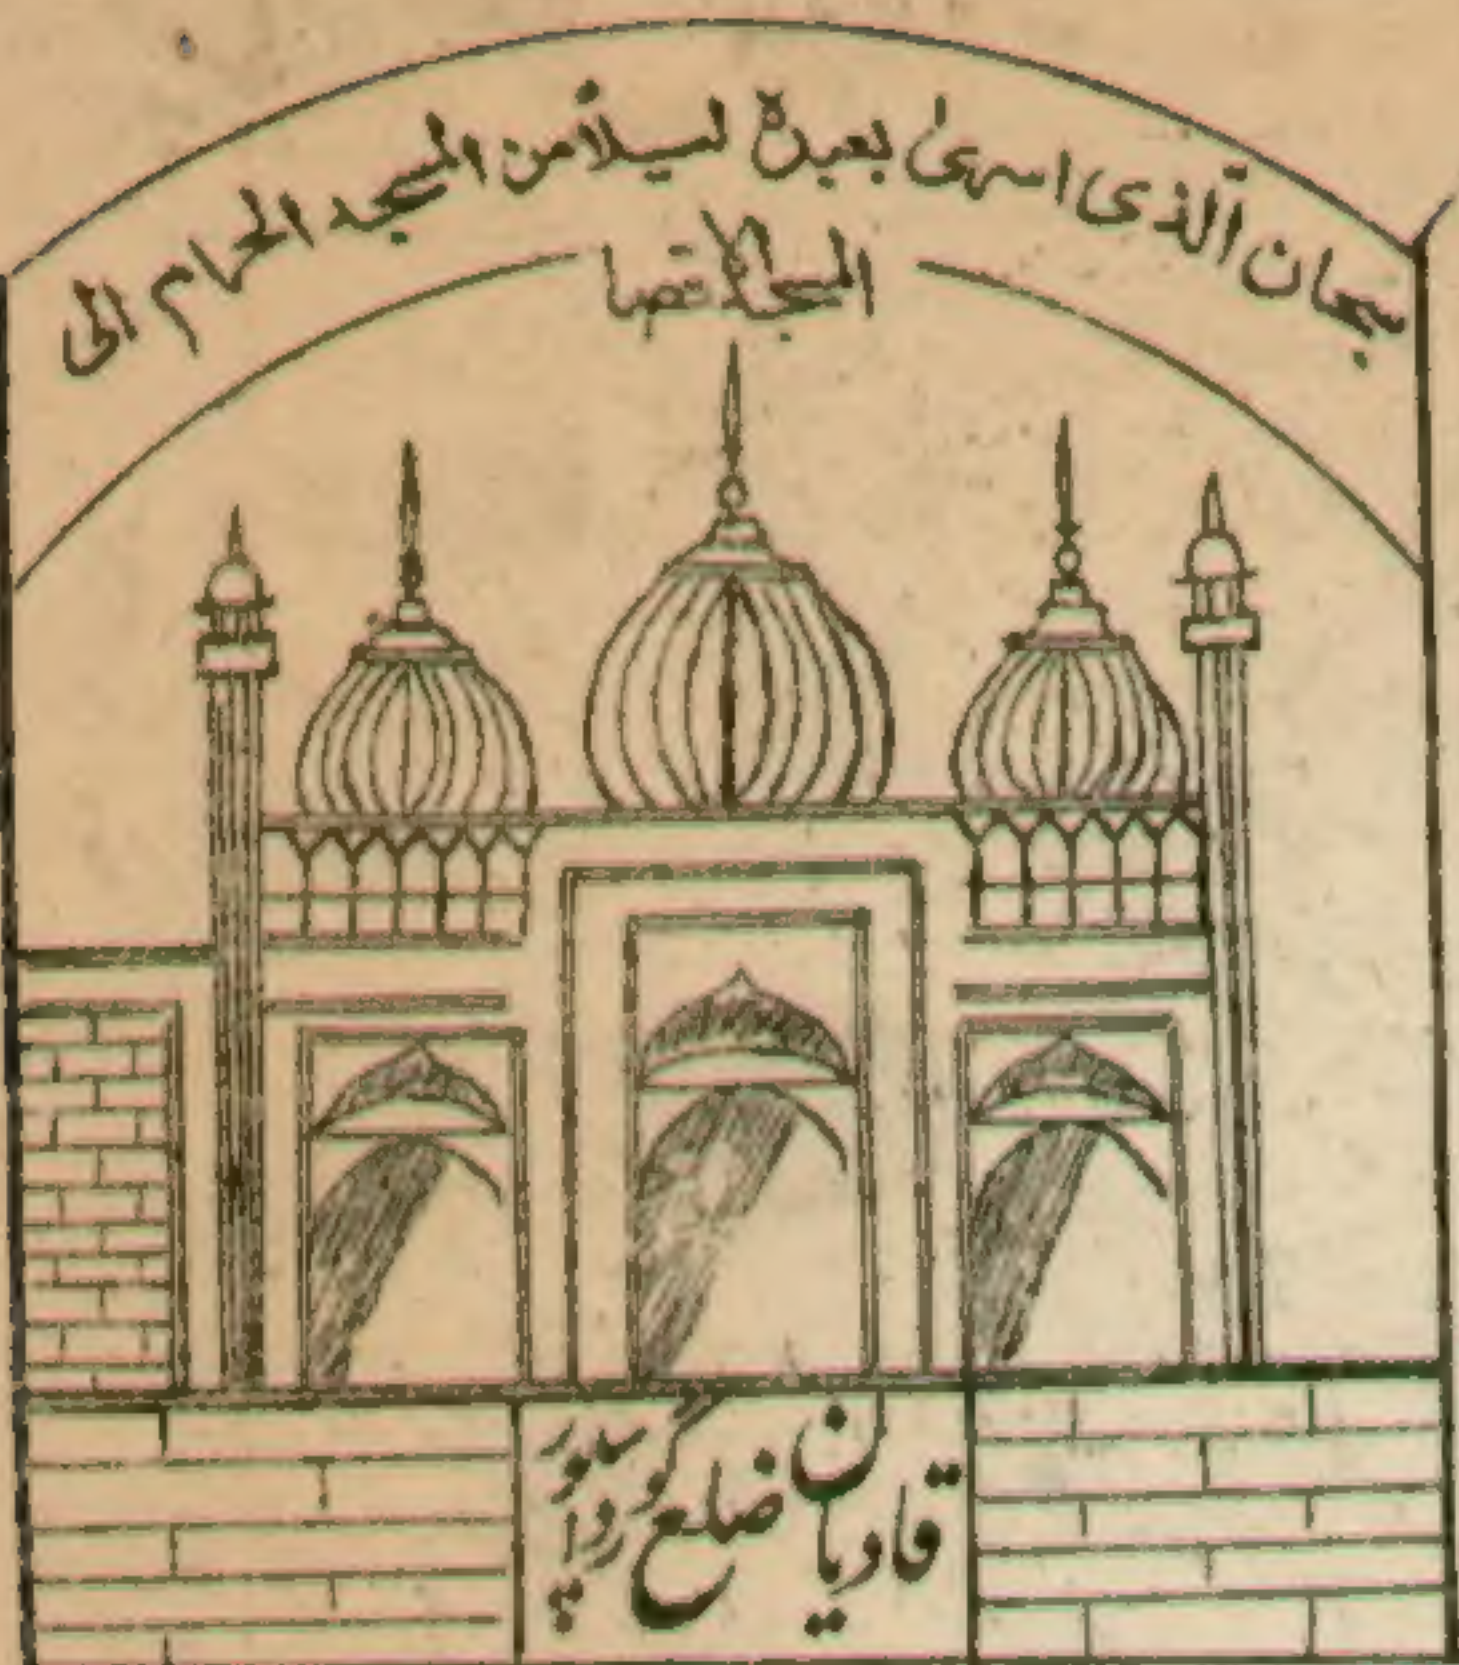 سبحان الّذی اسریٰ بعبدہ لیلاً من المسجد الحرام الی
المسجد الاقصا
قادیان ضلع گورداسپور